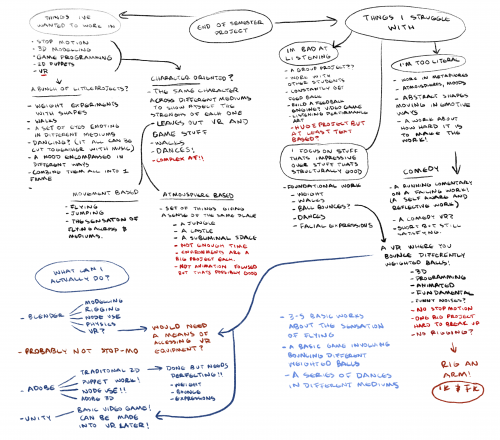 END OF SEMESTER
PROJECT
THINGS I'VE
WANTED TO WORK IN
- STOP MOTION
- 3D MODELLING
- GAME PROGRAMMING
- 2D PUPPETS
- VR
A BUNCH OF LITTLE PROJECTS?
- WEIGHT EXPERIMENTS
WITH SHAPES
- WALKS
- A SET OF CTDS ENDING
IN DIFFERENT MEDIUMS
- DANCING? (IT ALL CAN BE
CUT TOGETHER WITH MUSIC)
- A MOOD ENCOMPASSED IN
DIFFERENT WAYS
- COMBINE THEM ALL INTO 1
FRAME
CHARACTER ORIENTED?
- THE SAME CHARACTER
ACROSS DIFFERENT MEDIUMS
TO SHOW MYSELF THE
STRENGTHS OF EACH ONE
- LEAVES OUT VR AND
GAME STUFF
- WALKS
- DANCES!
- COMPLEX AF!!
MOVEMENT BASED
- FLYING
- JUMPING
- THE SENSATION OF
FLYING ACROSS
MEDIUMS.
ATMOSPHERE BASED
- SET OF THINGS GIVING
A SENSE OF THE SAME PLACE
- A JUNGLE
- A CASTLE
- A SUBLIMINAL SPACE
- NOT ENOUGH TIME
- ENVIRONMENTS ARE A
BIG PROJECT EACH.
- NOT ANIMATION FOCUSED
BUT THATS POSSIBLY GOOD
THINGS I STRUGGLE
WITH
IM BAD AT
LISTENING
- A GROUP PROJECT??
- WORK WITH
OTHER STUDENTS
- CONSTANTLY GET
FEED BACK
- BUILD A FEEDBACK
ENGINE? VIDEO GAME
- LISTENING PERFORMANCE
ART
- HUGE PROJECT BUT
AT LEAST THAT
BASED?
I FOCUS ON STUFF
THATS IMPRESSIVE
OVER STUFF THATS
STRUCTURALLY GOOD
- FOUNDATIONAL WORK
- WEIGHT
- WALKS
- BALL BOUNCES?
- DANCES
- FACIAL EXPRESSIONS
I'M TOO LITERAL
- WORK IN METAPHORS
- ATMOSPHERES, MOODS
- ABSTRACT SHAPES
MOVING IN EMOTIVE
WAYS
- A WORK ABOUT
HOW HARD IT IS
TO MAKE THE
WORK!
COMEDY
- A RUNNING COMENTARY
ON A FAILING WORK! (A
SELF AWARE AND
REFLECTIVE WORK)
- A COMEDY VR?
- SHORT BUT STILL
SATISFYING.
A VR WHERE YOU
BOUNCE DIFFERENTLY
WEIGHTED BALLS!
- 3D
- PROGRAMMING
- ANIMATED
- FUNDAMENTAL
- FUNNY NOISES?
- NO STOP MOTION
- ONE BIG PROJECT
HARD TO BREAK UP
- NO RIGGING?
RIG AN
ARM!
IK & FK
WHAT CAN I
ACTUALLY DO?
- BLENDER
MODELLING
RIGGING
NODE USE
PHYSICS
VR?
WOULD NEED
A MEANS OF
ACCESSING VR
EQUIPMENT?
- PROBABLY NOT STOP-MO
- ADOBE
TRADITIONAL 2D
PUPPET WORK!
NODE USE!!
ADOBE 3D
DONE BUT NEEDS
PERFECTING!!
- WEIGHT
- BOUNCE
- EXPRESSIONS
- UNITY
BASIC VIDEO GAME!
CAN BE MADE
INTO VR LATER!
- 3-5 BASIC WORKS
ABOUT THE SENSATION
OF FLYING
- A BASIC GAME INVOLVING
BOUNCING DIFFERENT
WEIGHTED BALLS
- A SERIES OF DANCES
IN DIFFERENT MEDIUMS